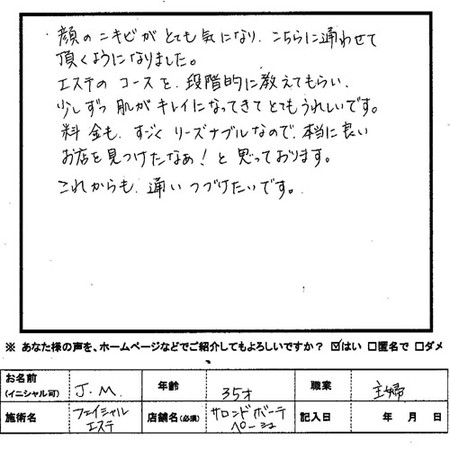 顔のニキビがとても気になり、こちらに通わせて
頂くようになりました。
エステのコースを、段階的に教えてもらい、
少しずつ肌がキレイになってきてとてもうれしいです。
料金も、すごくリーズナブルなので、本当に良い
お店を見つけたなぁ！と思っております。
これからも、通いつづけたいです。
※ あなた様の声を、ホームページなどでご紹介してもよろしいですか？ ☑はい □匿名で □ダメ
お名前（イニシャル可） J.M. 年齢 35才 職業 主婦
施術名 フェイシャルエステ 店舗名（必須） サロンドボーテペーシュ 記入日 年 月 日